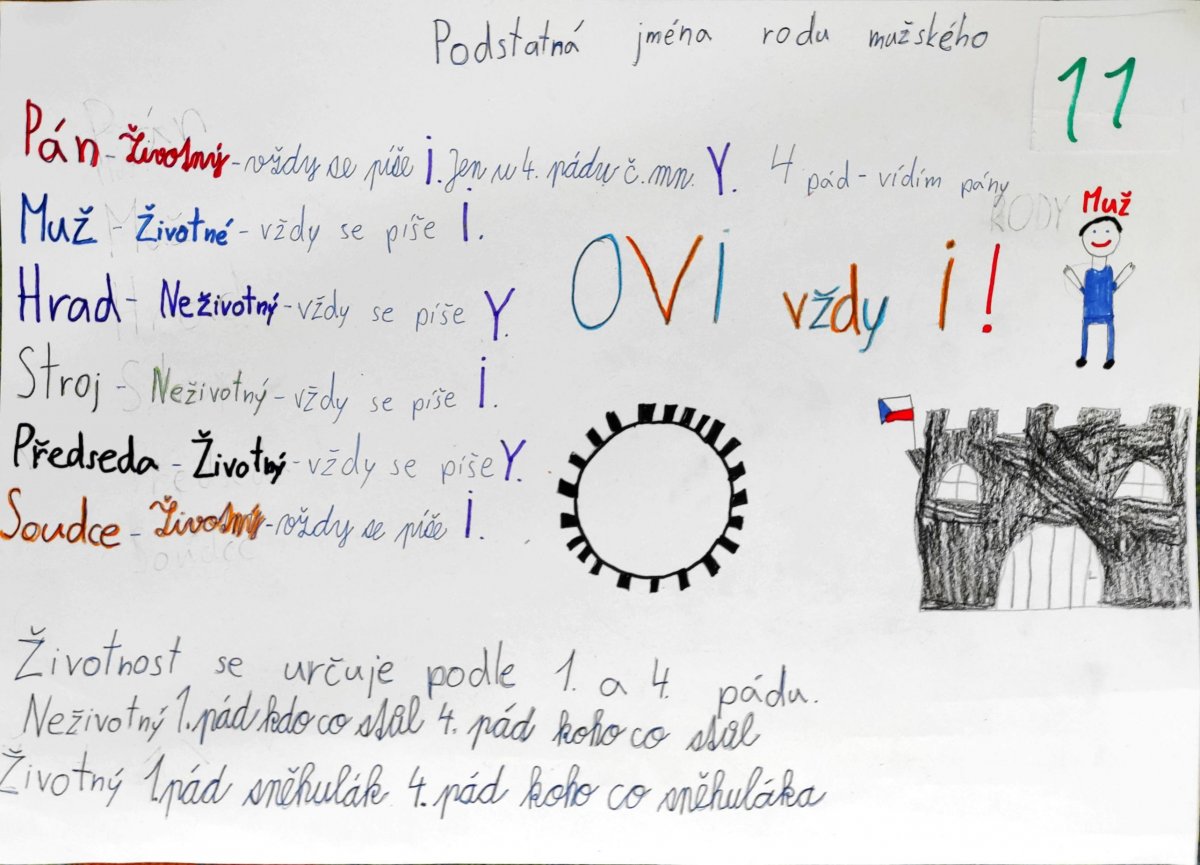 Podstatná jména rodu mužského
11
Pán - Životný - vždy se píše i. Jen u 4. pádu č. mn. Y. 4 pád - vidím pány
Muž - Životné - vždy se píše i.
RODY
Muž
OVI vždy i!
Hrad - Neživotný - vždy se píše Y.
Stroj - Neživotný - vždy se píše i.
Předseda - Životný - vždy se píše Y.
Soudce - Životný - vždy se píše i.
Životnost se určuje podle 1. a 4. pádu.
Neživotný 1. pád kdo co stůl 4. pád koho co stůl
Životný 1. pád sněhulák 4. pád koho co sněhuláka